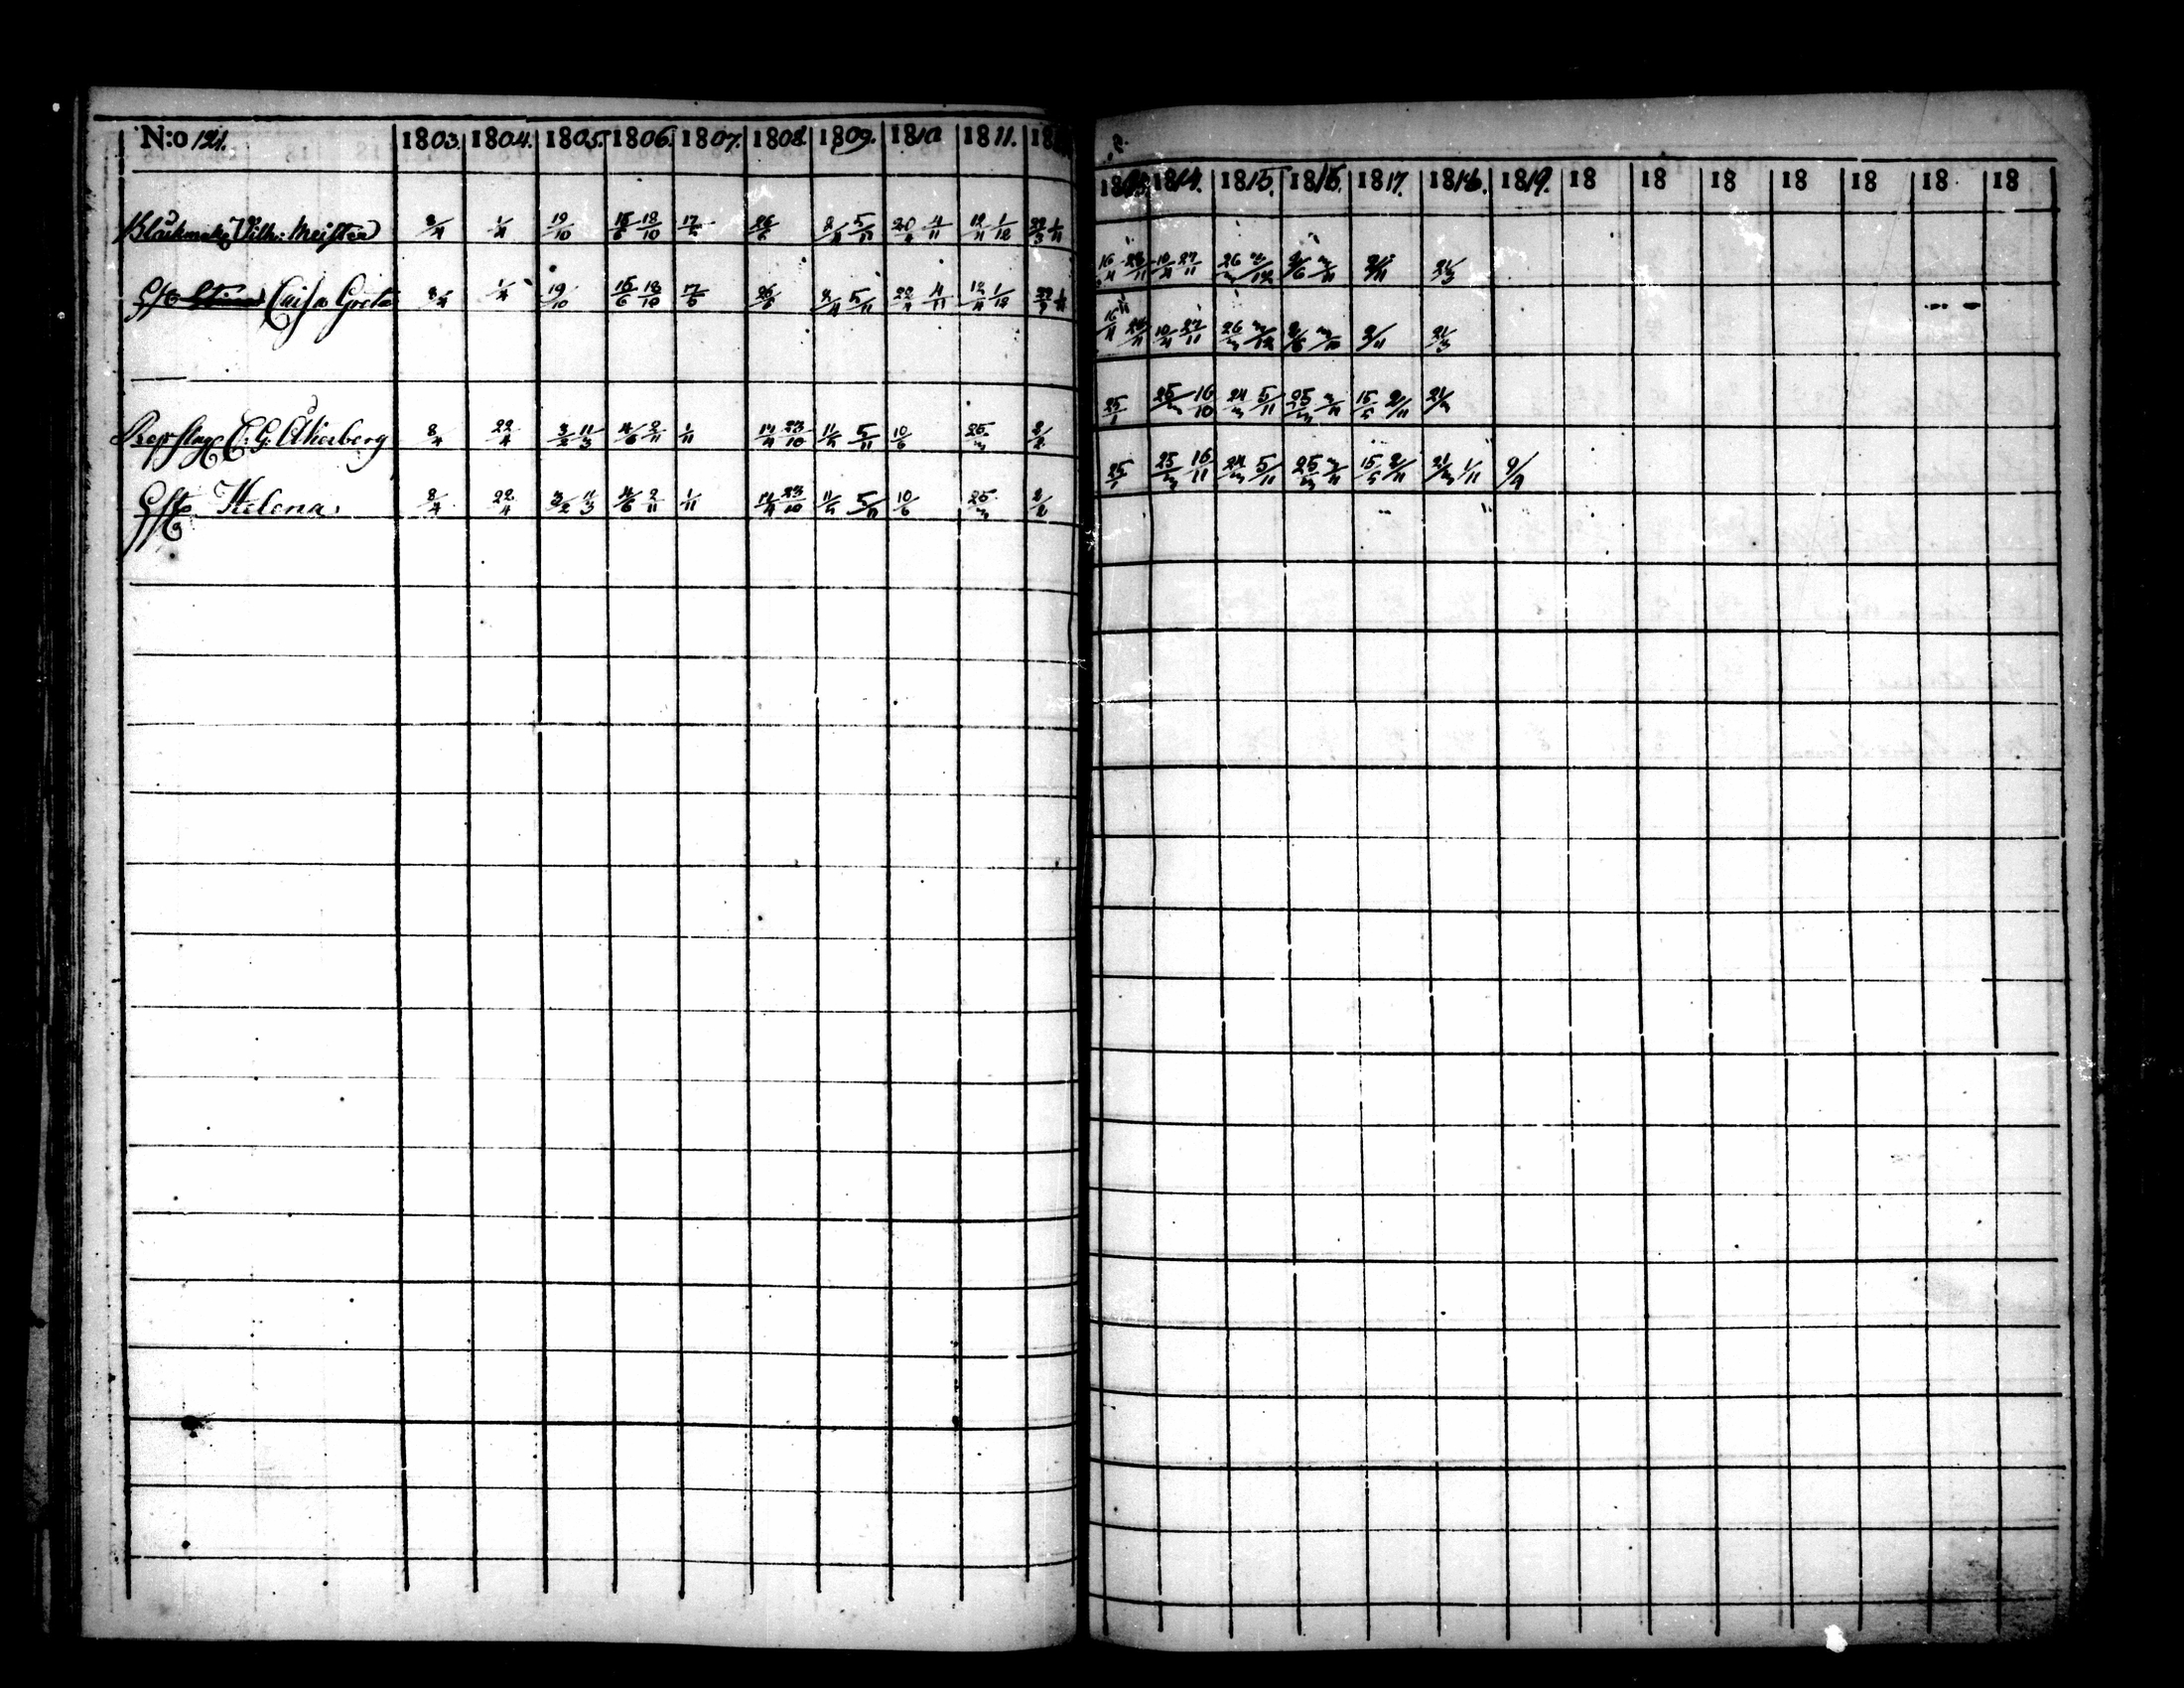 N:o 121. 1803. 1804. 1805. 1806. 1807. 1808. 1809. 1810 1811. 18
Vilh: Meister 8/4 1/4 19/10 15/6 18/10 17/5 26/6 5/11 20/4 4/11 12/4 1/12 22/3 1/11
Hst Caisa Greta 8/4 1/4 19/10 15/6 18/10 17/5 26/6 5/11 22/4 4/11 12/4 1/12 22/3 1/11
Repslag C. G. Åkerberg 8/4 22/4 3/2 11/3 4/6 2/11 1/11 14/4 23/10 11/5 5/11 10/6 25/3 2/2
Hst Helena 8/4 22/4 3/2 11/3 4/6 2/11 1/11 14/4 23/10 11/5 5/11 10/6 25/3 2/2
1813 1814. 1815. 1816. 1817. 1818. 1819. 18 18 18 18 18 18 18
16/4 28/11 10/4 27/11 26/3 2/6 2/11 21/3
16/4 28/11 10/4 27/11 26/3 2/6 2/11 21/3
25/1 25/3 16/10 24/3 5/11 25/3 3/11 15/5 2/11 21/3
25/1 25/3 16/11 24/3 5/11 25/3 3/11 15/5 2/11 21/3 1/11 9/4